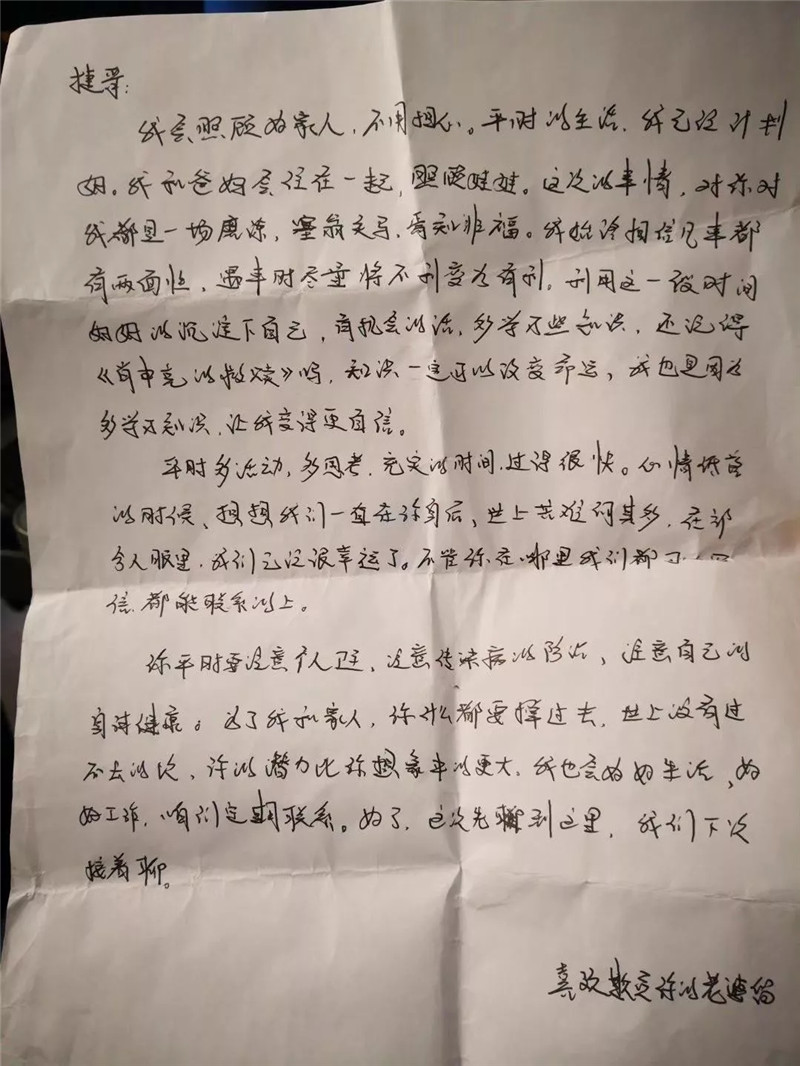 捷哥:
我会照顾好家人,不用担心。平时的生活,我已经计划
好。我和爸妈会住在一起,照顾娃娃。这次的事情,对你对
我都是一场磨练,塞翁失马,焉知非福。我始终相信凡事都
有两面性,遇事时尽量将不利变为有利。利用这一段时间
好好的沉淀下自己,有机会的话,多学习些知识,还记得
《肖申克的救赎》吗,知识一定可以改变命运,我也是因为
多学习知识,让我变得更自信。
平时多活动,多思考,充实的时间,过得很快。心情低落
的时候,想想我们一直在你身后,世上苦难何其多,在部
分人眼里,我们已经很幸运了。不管你在哪里我们都
信,都能联系的上。
你平时要注意个人卫生,注意传染病的防治,注意自己的
身体健康。为了我和家人,你什么都要撑过去,世上没有过
不去的坎,你的潜力比你想象中的更大。我也会好好生活,好
好工作,咱们定期联系。好了,这次先聊到这里,我们下次
接着聊。
喜欢 你的老婆